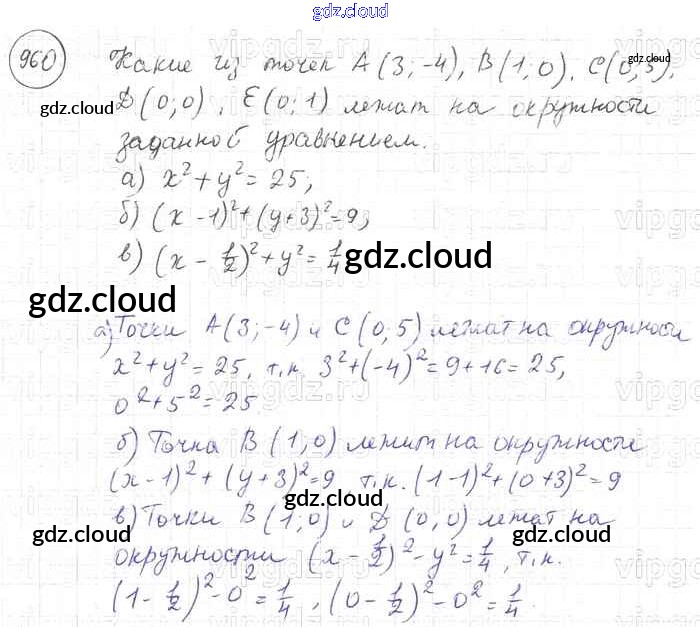 gdz.cloud
960 Какие из точек A(3;-4), B(1;0), C(0;5),
D(0;0), E(0;1) лежат на окружности
заданной уравнением.
а) x²+y²=25;
б) (x-1)²+(y+3)²=9;
в) (x-1/2)²+y²=1/4
gdz.cloud
gdz.cloud
а) Точки A(3;-4) и C(0;5) лежат на окружности
x²+y²=25, т.к. 3²+(-4)²=9+16=25,
0²+5²=25
б) Точка B(1;0) лежит на окружности
(x-1)²+(y+3)²=9 т.к. (1-1)²+(0+3)²=9
в) Точки B(1;0) и D(0,0) лежат на
окружности (x-1/2)²-y²=1/4, т.к.
(1-1/2)²-0²=1/4, (0-1/2)²-0²=1/4.